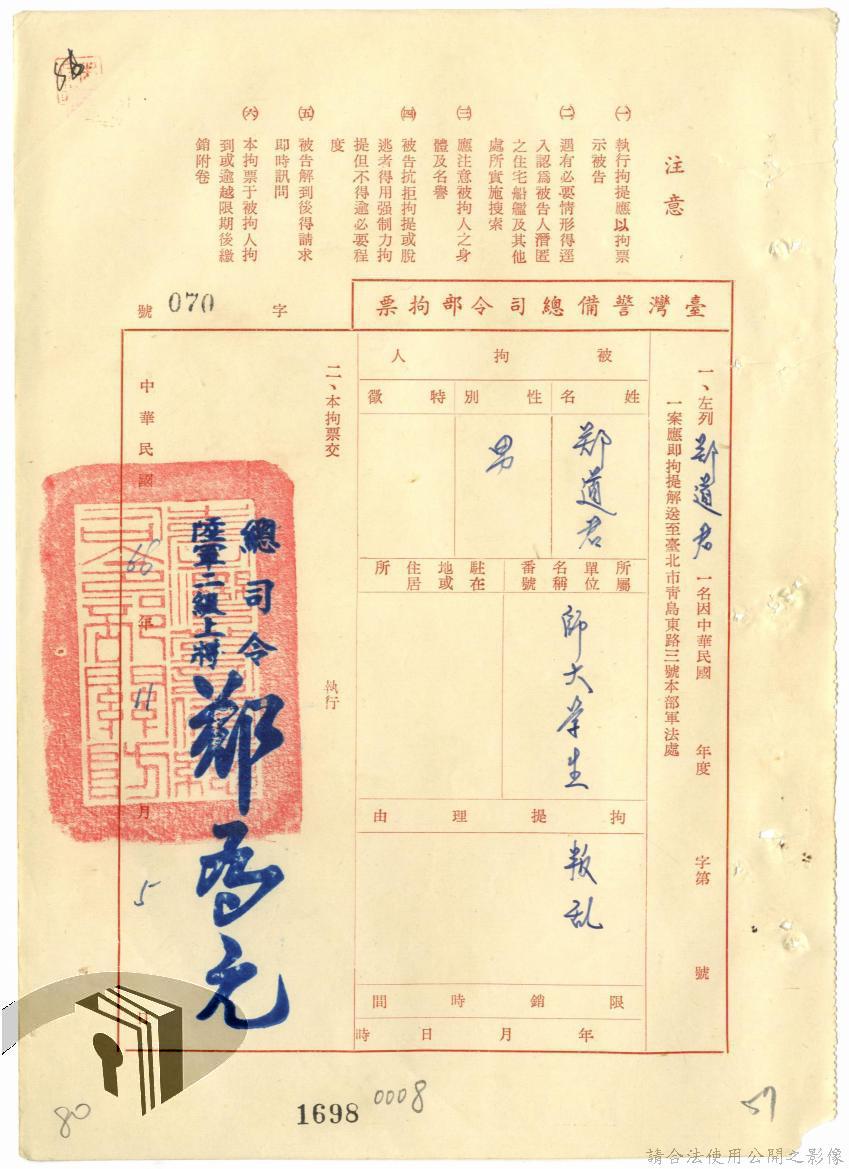 注意
㈠ 執行拘提應以拘票
示被告
㈡ 遇有必要情形得逕
入認爲被告人潛匿
之住宅船艦及其他
處所實施搜索
㈢ 應注意被拘人之身
體及名譽
㈣ 被告抗拒拘提或脫
逃者得用强制力拘
提但不得逾必要程
度
㈤ 被告解到後得請求
即時訊問
㈥ 本拘票于被拘人拘
到或逾越限期後繳
銷附卷
臺灣警備總司令部拘票
字 070 號
一、左列 郑道君 一名因中華民國 年度 字第 號
一案應即拘提解送至臺北市靑島東路三號本部軍法處
被拘人
姓名
性別
特徵
郑道君
男
所屬單位名稱番號
駐在地或住居所
師大学生
拘提理由
叛乱
限銷時間
年月日時
二、本拘票交
執行
總司令
陸軍二級上將
鄭爲元
中華民國 66 年 11 月 5 日
80
1698
0008
57
請合法使用公開之影像